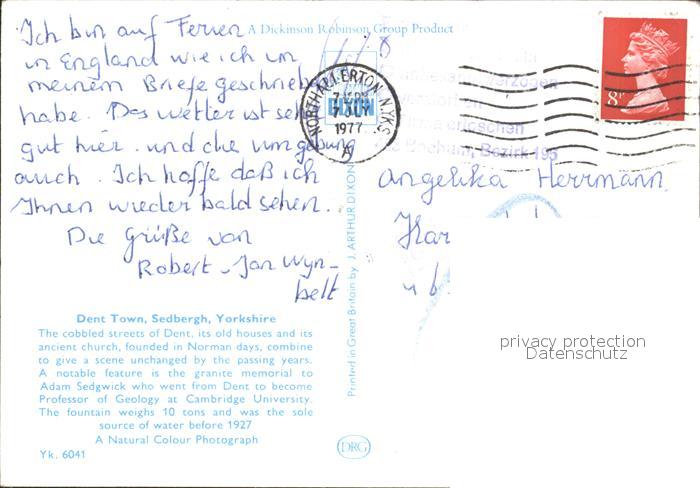 Ich bin auf Ferien
in England wie ich in
meinem Briefe geschrieb
habe. Das wetter ist sehr
gut hier. und die umgebung
auch. Ich hoffe daß ich
Ihnen wieder bald sehen.
Die Grüße van
Robert-Jan Wyn-
belt
A Dickinson Robinson Group Product
NORTHALLERTON N.YKS
7 JLY
1977
A
8P
verzogen
Bochum, Bezirk 195
Angelika Herrmann
Har
Printed in Great Britain by J. ARTHUR DIXON
privacy protection
Datenschutz
Dent Town, Sedbergh, Yorkshire
The cobbled streets of Dent, its old houses and its
ancient church, founded in Norman days, combine
to give a scene unchanged by the passing years.
A notable feature is the granite memorial to
Adam Sedgwick who went from Dent to become
Professor of Geology at Cambridge University.
The fountain weighs 10 tons and was the sole
source of water before 1927
A Natural Colour Photograph
Yk. 6041
DRG